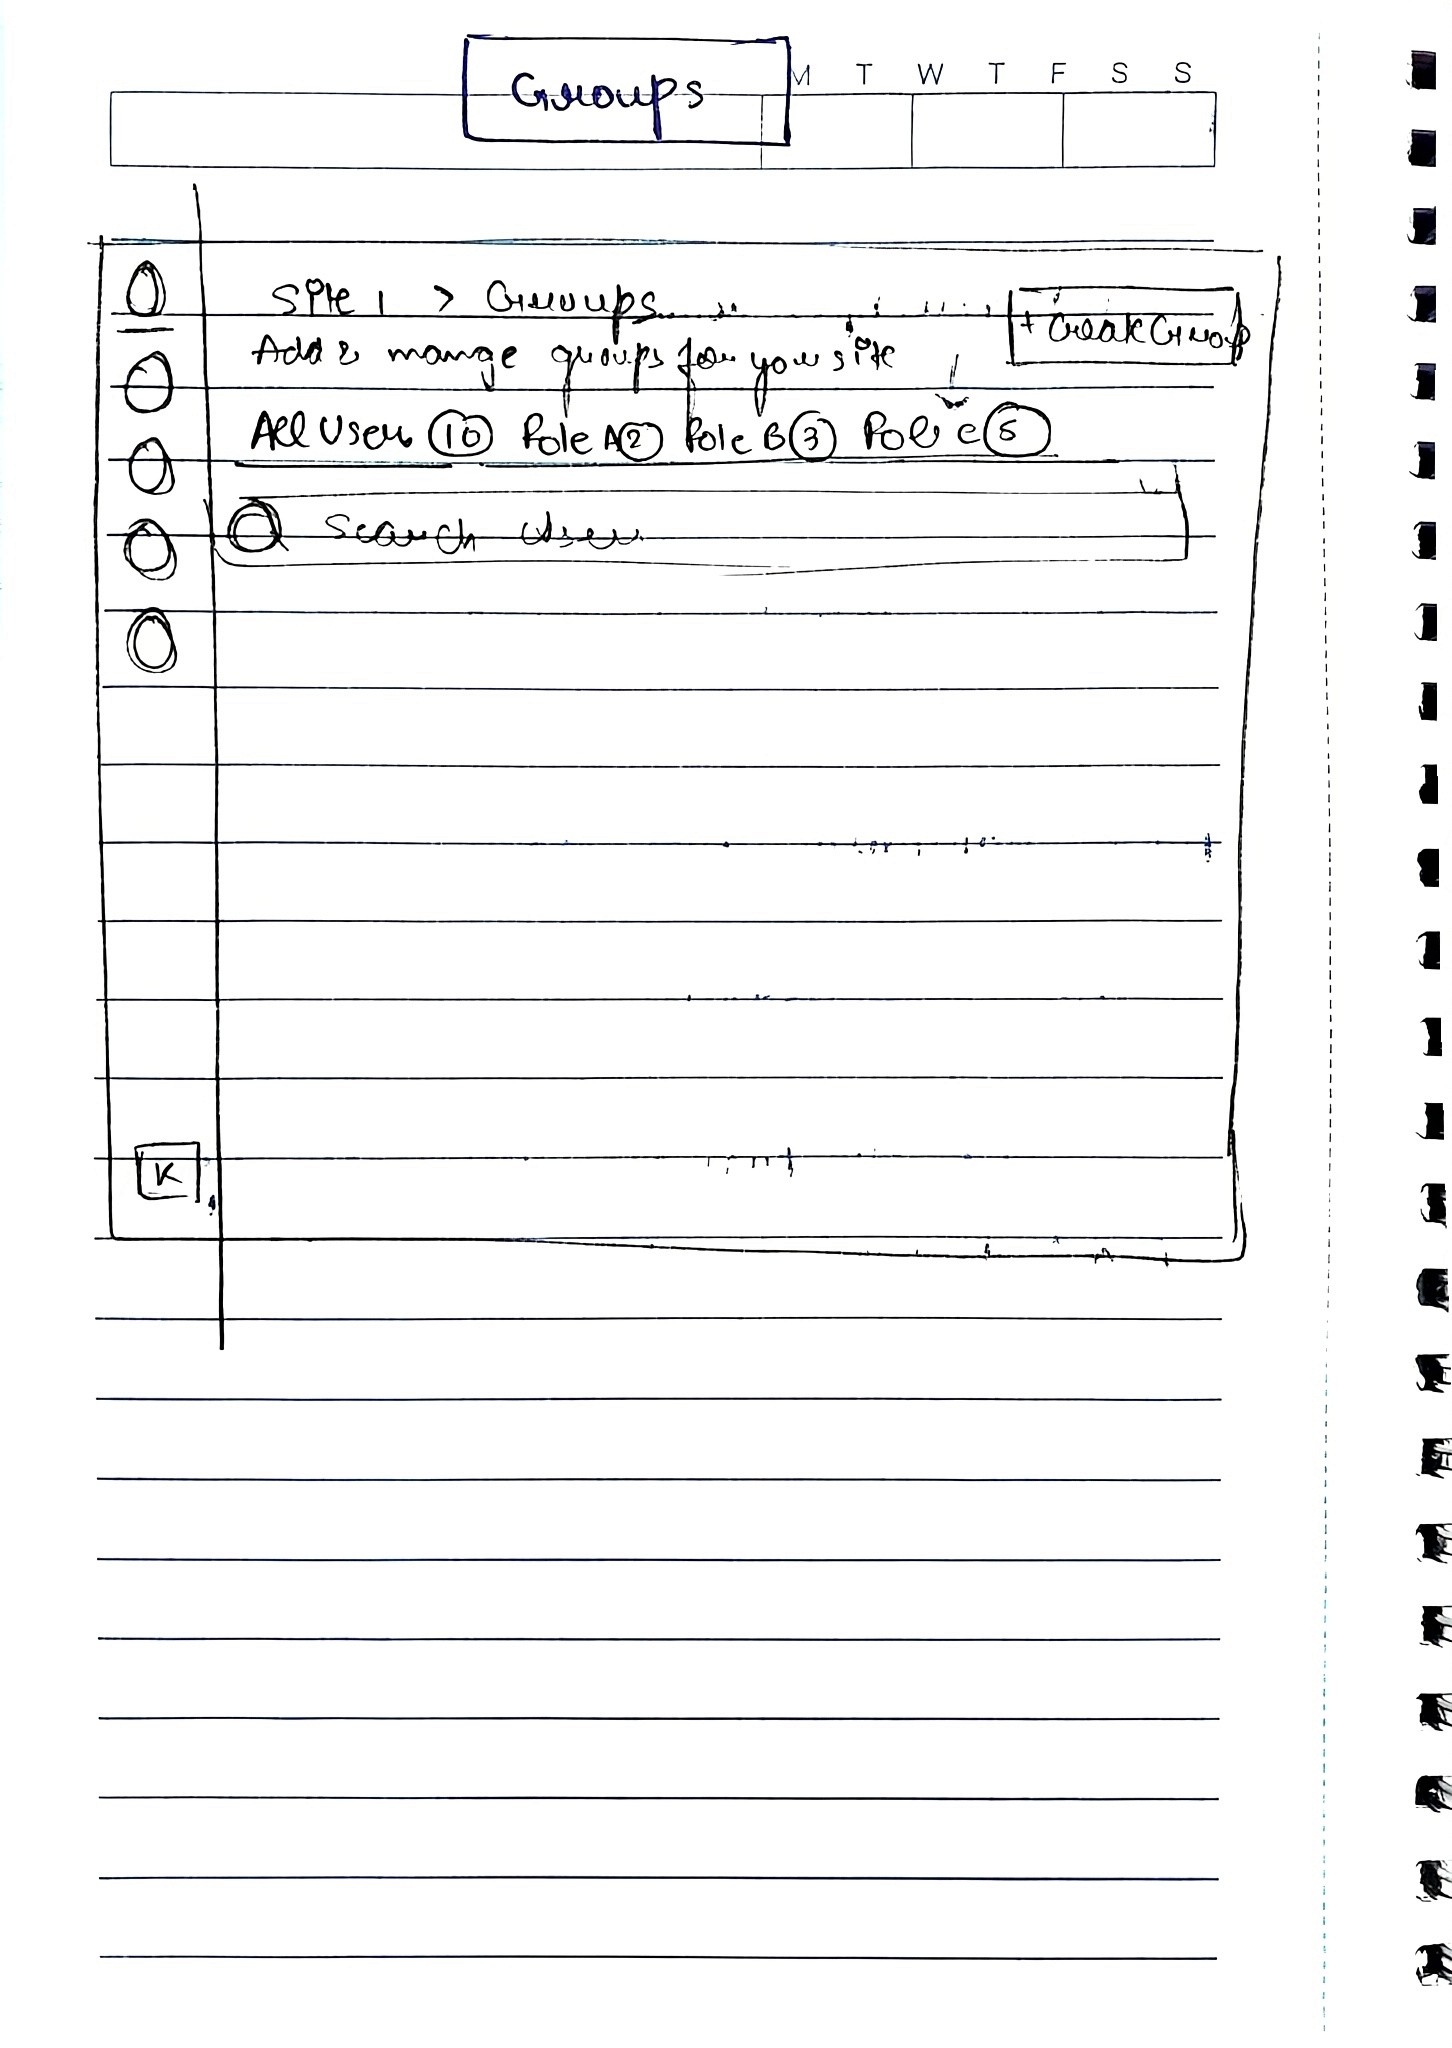 Groups
M T W T F S S
Site 1 > Groups
+ Creat Group
Add & mange groups for your site
All Users 10 Role A 2 Role B 3 Role C 5
Search User
K